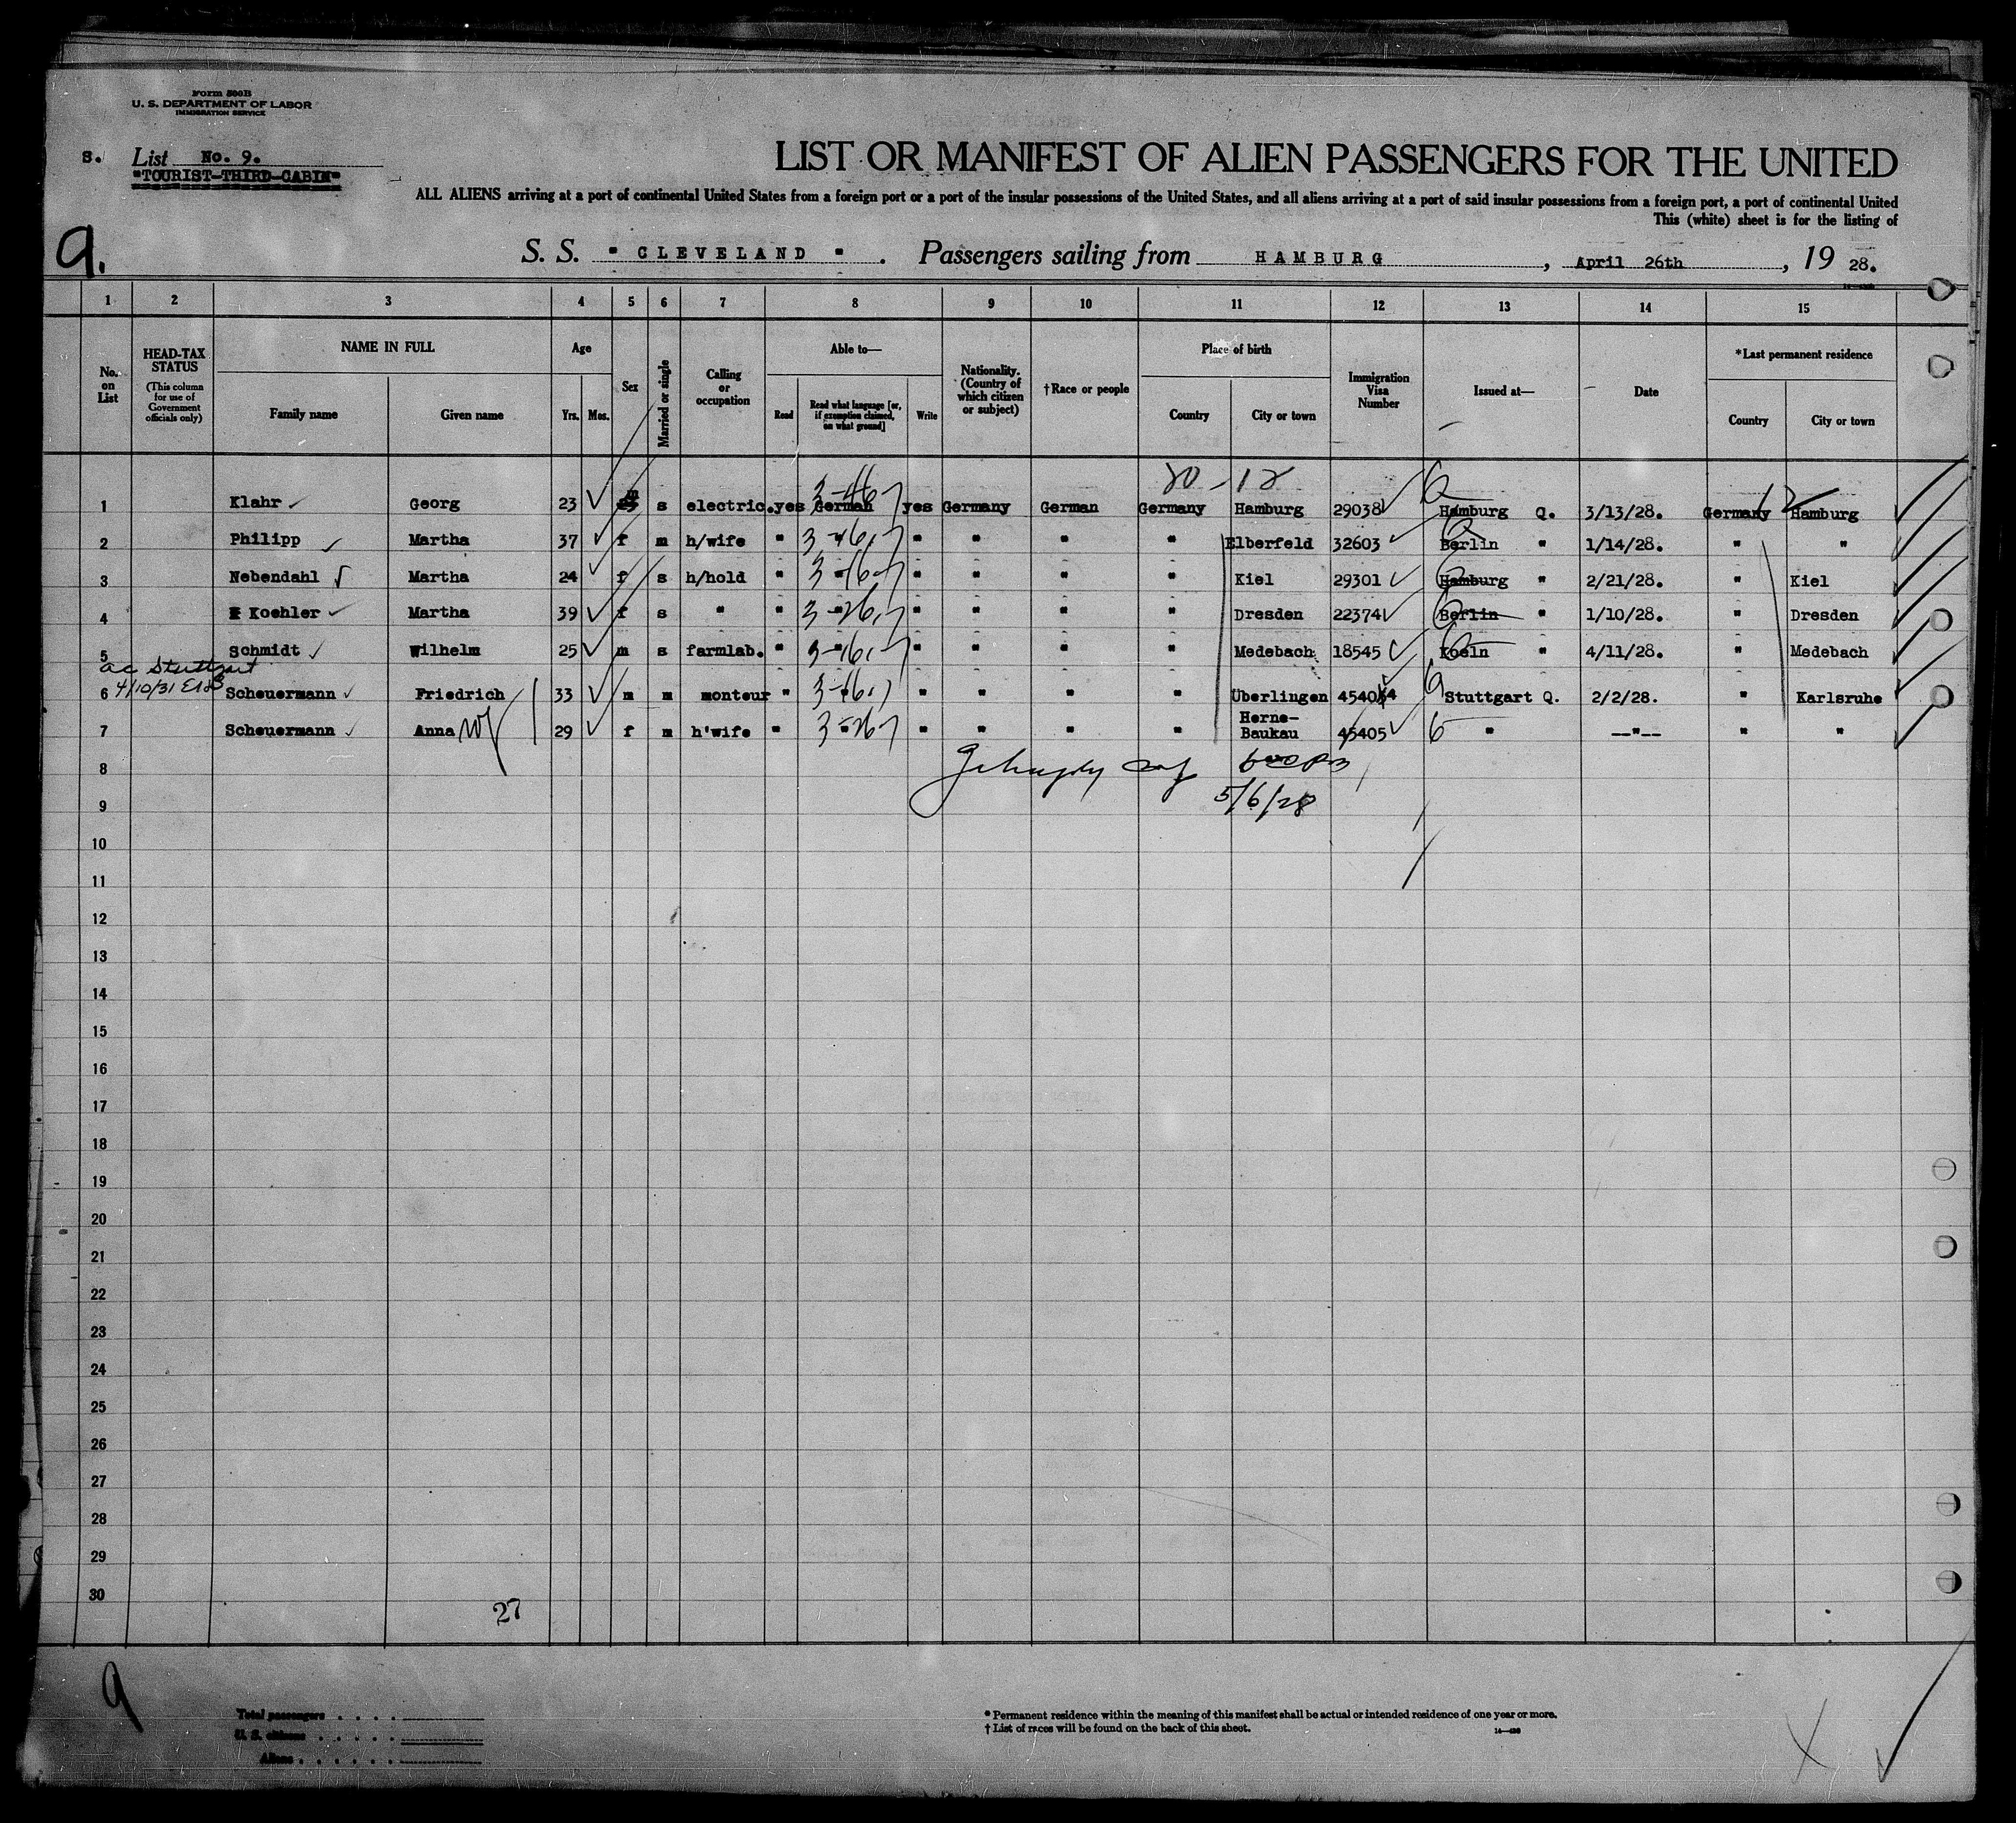 Form 500B
U. S. DEPARTMENT OF LABOR
IMMIGRATION SERVICE
S. List No. 9.
"TOURIST-THIRD-CABIN"
LIST OR MANIFEST OF ALIEN PASSENGERS FOR THE UNITED
ALL ALIENS arriving at a port of continental United States from a foreign port or a port of the insular possessions of the United States, and all aliens arriving at a port of said insular possessions from a foreign port, a port of continental United
This (white) sheet is for the listing of
9.
S. S. " CLEVELAND " . Passengers sailing from HAMBURG , April 26th , 19 28.
1 2 3 4 5 6 7 8 9 10 11 12 13 14 15
No. on List
HEAD-TAX STATUS (This column for use of Government officials only)
NAME IN FULL
Family name Given name
Age
Yrs. Mos.
Sex
Married or single
Calling or occupation
Able to—
Read Read what language [or, if exemption claimed, on what ground] Write
Nationality. (Country of which citizen or subject)
†Race or people
Place of birth
Country City or town
Immigration Visa Number
Issued at—
Date
*Last permanent residence
Country City or town
20-12
1 Klahr Georg 23 m s electric. yes German yes Germany German Germany Hamburg 29038 Hamburg Q. 3/13/28. Germany Hamburg
2 Philipp Martha 37 f m h/wife " " " " " " Elberfeld 32603 Berlin " 1/14/28. " "
3 Nebendahl Martha 24 f s h/hold " " " " " " Kiel 29301 Hamburg " 2/21/28. " Kiel
4 Koehler Martha 39 f s " " " " " " " Dresden 22374 Berlin " 1/10/28. " Dresden
5 Schmidt Wilhelm 25 m s farmlab. " " " " " " Medebach 18545 Koeln " 4/11/28. " Medebach
ac Stuttgart
4/10/31
6 Scheuermann Friedrich 33 m m monteur " " " " " " Uberlingen 45404 Stuttgart Q. 2/2/28. " Karlsruhe
7 Scheuermann Anna 29 f m h'wife " " " " " " Herne-Baukau 45405 " --"-- " "
8
5/6/28
9
10
11
12
13
14
15
16
17
18
19
20
21
22
23
24
25
26
27
28
29
30
27
9
Total passengers . . . .
U. S. citizens . . . . .
Aliens . . . . . .
* Permanent residence within the meaning of this manifest shall be actual or intended residence of one year or more.
† List of races will be found on the back of this sheet.